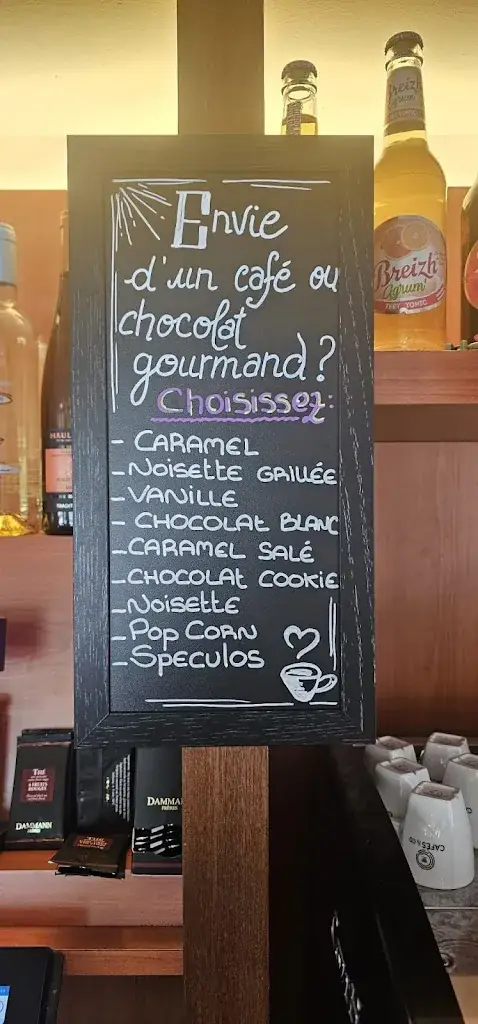 Envie
d'un café ou
chocolat
gourmand?
Choisissez:
- CARAMEL
- NOISETTE GRILLÉE
- VANILLE
- CHOCOLAT BLANC
- CARAMEL SALÉ
- CHOCOLAT COOKIE
- NOISETTE
- POP CORN
- SPECULOS
Breizh
agrum'
Breizh
agrum'
THÉ
DAMMANN
FRÈRES
DAMMANN
FRÈRES
CAFÉS & CO